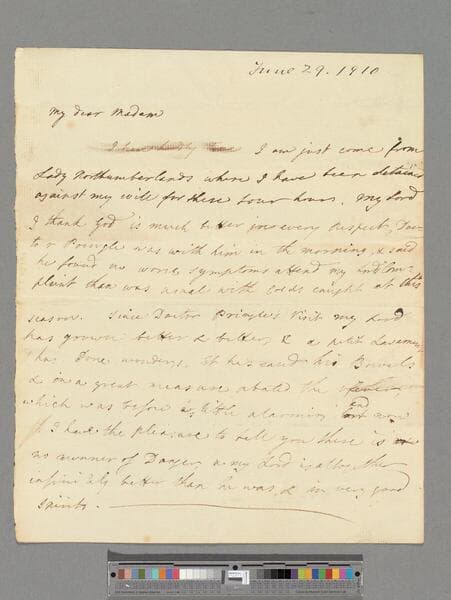 June 29. 1910
My dear Madam
I am just come from
Lady Northumberlands where I have been detained
against my will for these four hours. My Lord
I thank God is much better in every respect, Doc-
tor Pringle was with him in the morning, & said
he found no worse symptoms attend my Lord Com-
plaint than was usual with Colds caught at this
season. Since Doctor Pringle's Visit my Lord
has grown better & better, & a petit Lavement
has done wonders. It has eased his Bowels
& in a great measure abated the fever,
which was before a little alarming and now
I have the pleasure to tell you there is
no manner of Danger, as my Lord is altogether
infinitely better than he was, & in very good
spirits.